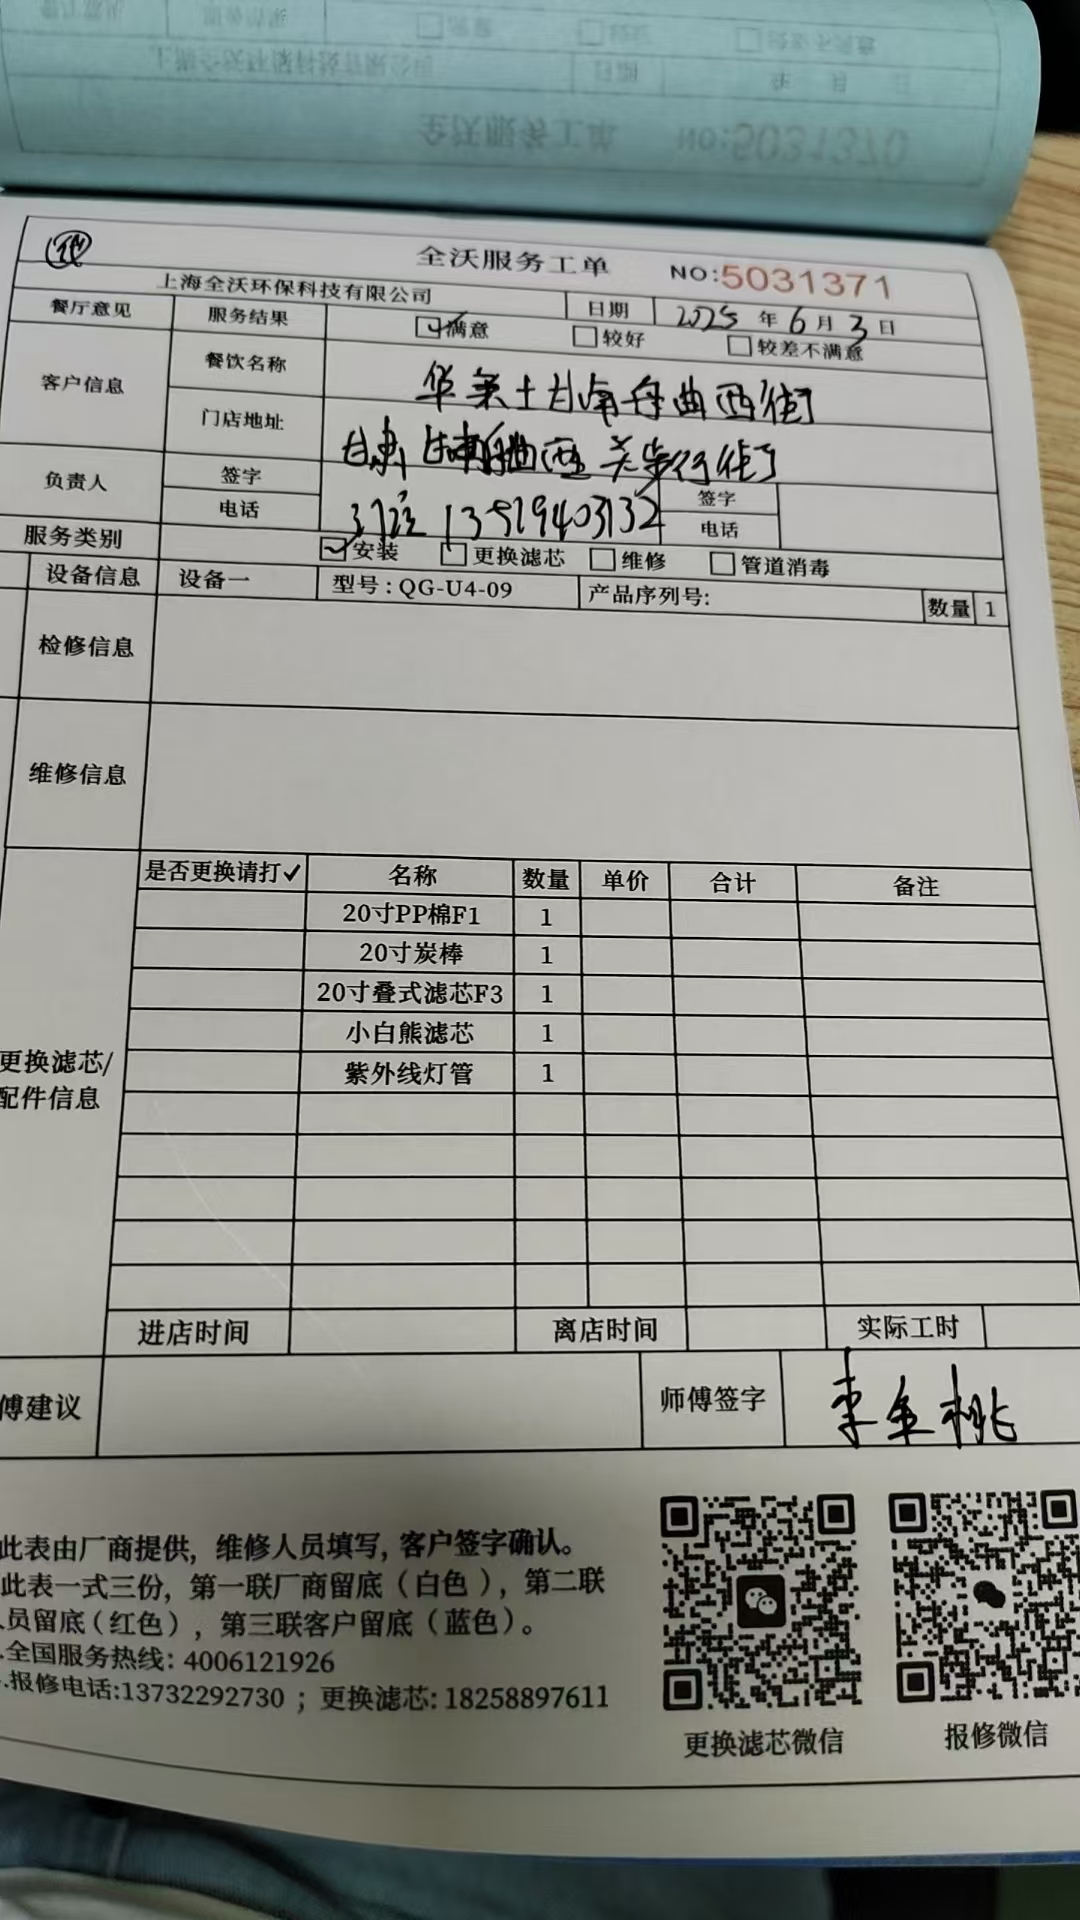 全沃服务工单 NO:5031370
全沃服务工单 NO:5031371
上海全沃环保科技有限公司 日期 2025年6月3日
餐厅意见 服务结果 ☑满意 □较好 □较差不满意
客户信息 餐饮名称 华莱士甘南舟曲西街
门店地址 甘肃 曲西关步行街
负责人 签字 签字
电话 13519403132 电话
服务类别 ☑安装 □更换滤芯 □维修 □管道消毒
设备信息 设备一 型号:QG-U4-09 产品序列号: 数量 1
检修信息
维修信息
更换滤芯/
配件信息
是否更换请打✓ 名称 数量 单价 合计 备注
20寸PP棉F1 1
20寸炭棒 1
20寸叠式滤芯F3 1
小白熊滤芯 1
紫外线灯管 1
进店时间 离店时间 实际工时
傅建议 师傅签字
此表由厂商提供,维修人员填写,客户签字确认。
此表一式三份,第一联厂商留底(白色),第二联
人员留底(红色),第三联客户留底(蓝色)。
全国服务热线:4006121926
报修电话:13732292730;更换滤芯:18258897611
更换滤芯微信 报修微信